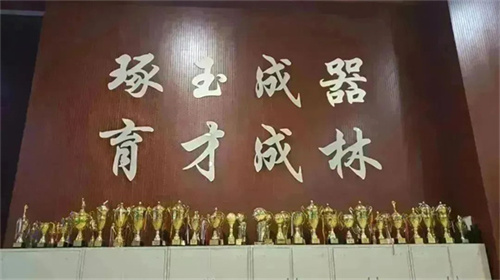 琢玉成器
育才成林